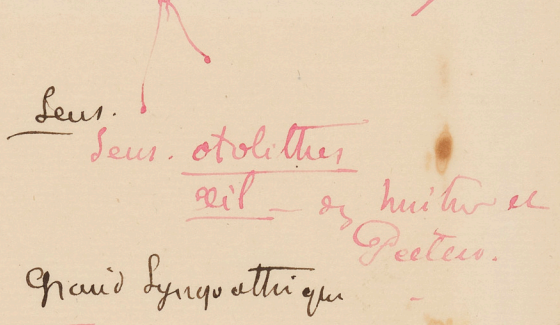 Sens.
Sens. otolithes
œil — chez huitre et
Pecten.
Grand Sympathique